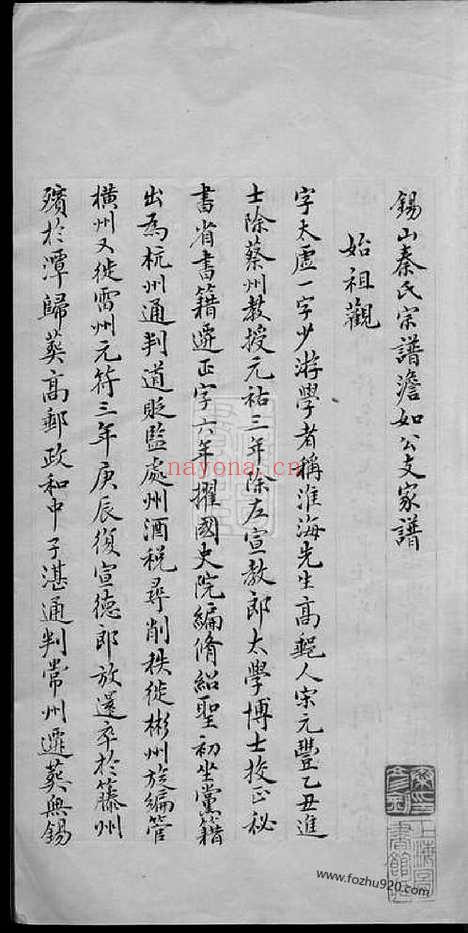 錫山秦氏宗譜澹如公支家譜
始祖觀
字太虛一字少游學者稱淮海先生高郵人宋元豐乙丑進
士除蔡州教授元祐三年除左宣教郎太學博士校正秘
書省書籍遷正字六年擢國史院編脩紹聖初坐黨籍
出為杭州通判道貶監處州酒稅尋削秩徙彬州旋編管
橫州又徙雷州元符三年庚辰復宣德郎放還卒於籐州
殯於潭歸葬高郵政和中子湛通判常州遷葬無錫
nayona.cn
www.fozhu920.com